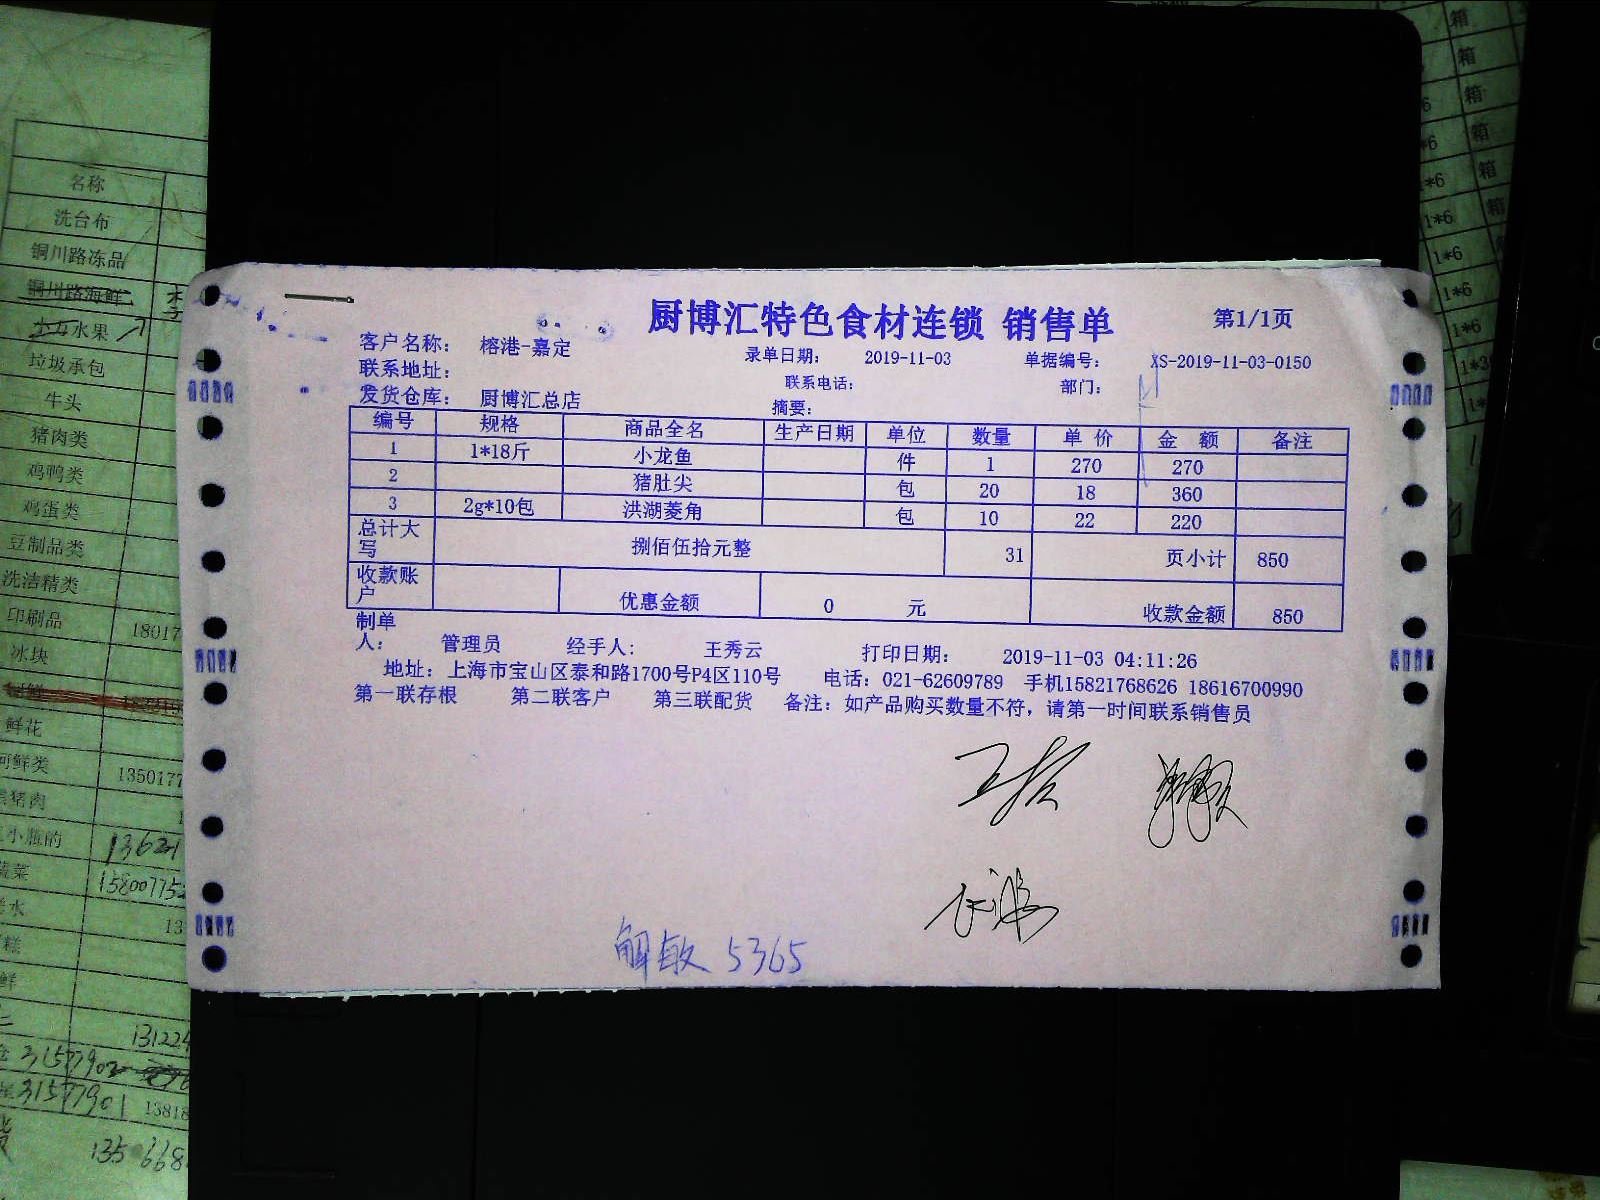 厨博汇特色食材连锁 销售单 第1/1页
客户名称: 榕港-嘉定 录单日期: 2019-11-03 单据编号: XS-2019-11-03-0150
联系地址: 联系电话: 部门:
发货仓库: 厨博汇总店 摘要:
编号 规格 商品全名 生产日期 单位 数量 单 价 金 额 备注
1 1*18斤 小龙鱼 件 1 270 270
2 猪肚尖 包 20 18 360
3 2g*10包 洪湖菱角 包 10 22 220
总计大写 捌佰伍拾元整 31 页小计 850
收款账户 优惠金额 0 元 收款金额 850
制单人: 管理员 经手人: 王秀云 打印日期: 2019-11-03 04:11:26
地址: 上海市宝山区泰和路1700号P4区110号 电话: 021-62609789 手机15821768626 18616700990
第一联存根 第二联客户 第三联配货 备注: 如产品购买数量不符, 请第一时间联系销售员
解敏 5365
名称
洗台布
铜川路冻品
铜川路海鲜
水果
垃圾承包
牛头
猪肉类
鸡鸭类
鸡蛋类
豆制品类
洗洁精类
印刷品 18017
冰块
鲜花
河鲜类 1350177
猪肉
13621
蔬菜 15800775
水 13
糕
鲜
13122
31577902
31577901 13818
135 668
箱
箱
箱
*6 箱
*6 箱
1*6 箱
1*6
1*6
1*6